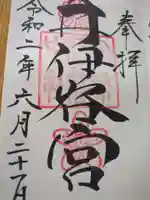 奉拝
井伊谷宮
令和二年六月二十一日